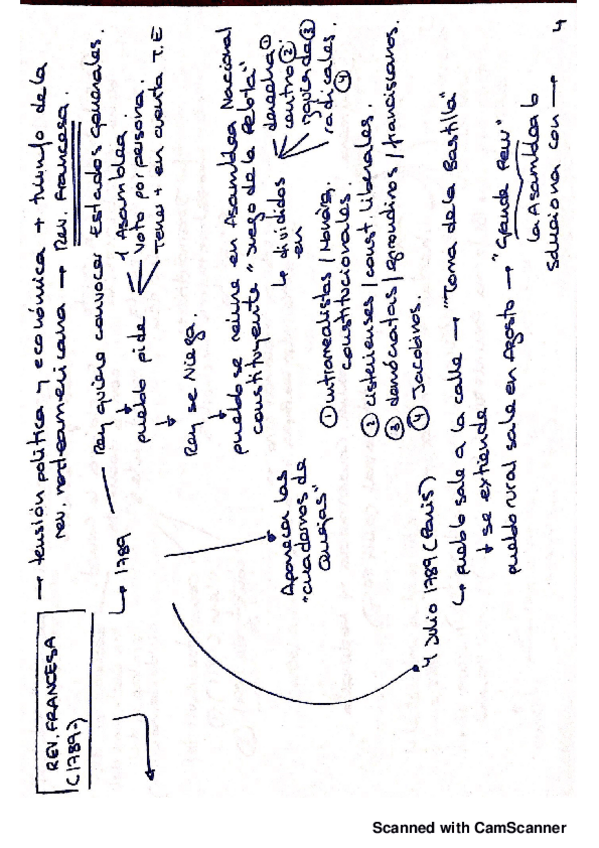 REV. FRANCESA
(1789-)
→ tensión política y económica + triunfo de la
rev. norteamericana → Rev. Francesa.
↳ 1789
Rey quiere convocar Estados generales.
↓
pueblo pide
1 Asamblea.
Voto por persona.
Tener + en cuenta T.E
↓
Rey se Niega.
↓
pueblo se reúne en Asamblea Nacional
constituyente "Juego de la Pelota"
↳ divididos
en
derecha ①
centro ②
izquierda ③
radicales.
④
Aparecen las
"cuadernos de
Quejas"
①
constitucionales.
② / const. liberales.
③ demócratas / / franciscanos.
④ Jacobinos.
4 Julio 1789 (París)
↳ pueblo sale a la calle → "Toma de la Bastilla"
↓ se extiende
pueblo rural sale en Agosto → "Grande Peur"
la Asamblea lo
soluciona con →
4
Scanned with CamScanner